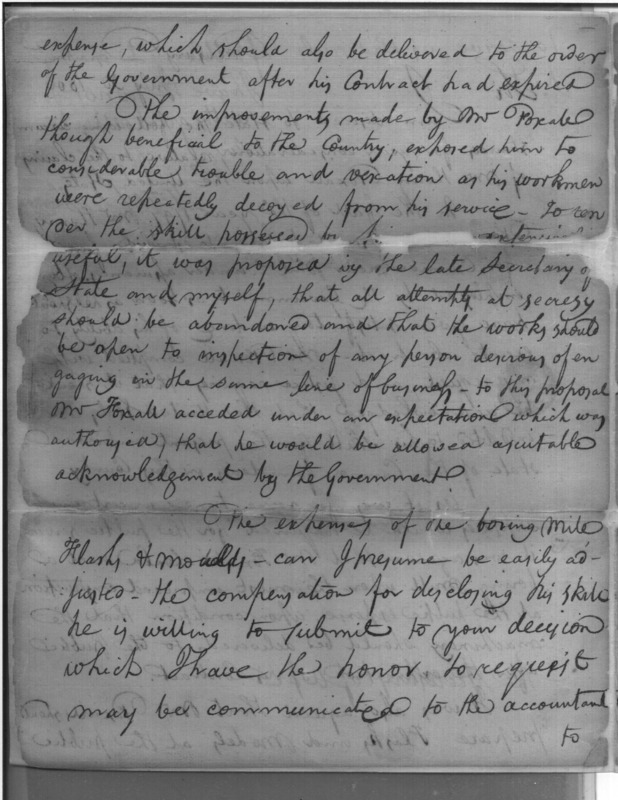 expense, which should also be delivered to the order
of the Government after his Contract had expired
The improvements made by Mr Foxall
though beneficial to the Country, exposed him to
considerable trouble and vexation as his workmen
were repeatedly decoyed from his service - To ren
der the skill possessed by
useful, it was proposed by the late Secretary of
State and myself, that all attempts at secresy
should be abandoned and that the works should
be open to inspection of any person desirous of en
gaging in the same line of business - to this proposal
Mr Foxall acceded under an expectation (which was
authorised) that he would be allowed a suitable
acknowledgement by the Government.
The expenses of one boring Mill
Flasks & Moulds - can I presume be easily ad-
justed - the compensation for disclosing his skill
he is willing to submit to your decision
which I have the honor to request
may be communicated to the accountant
to